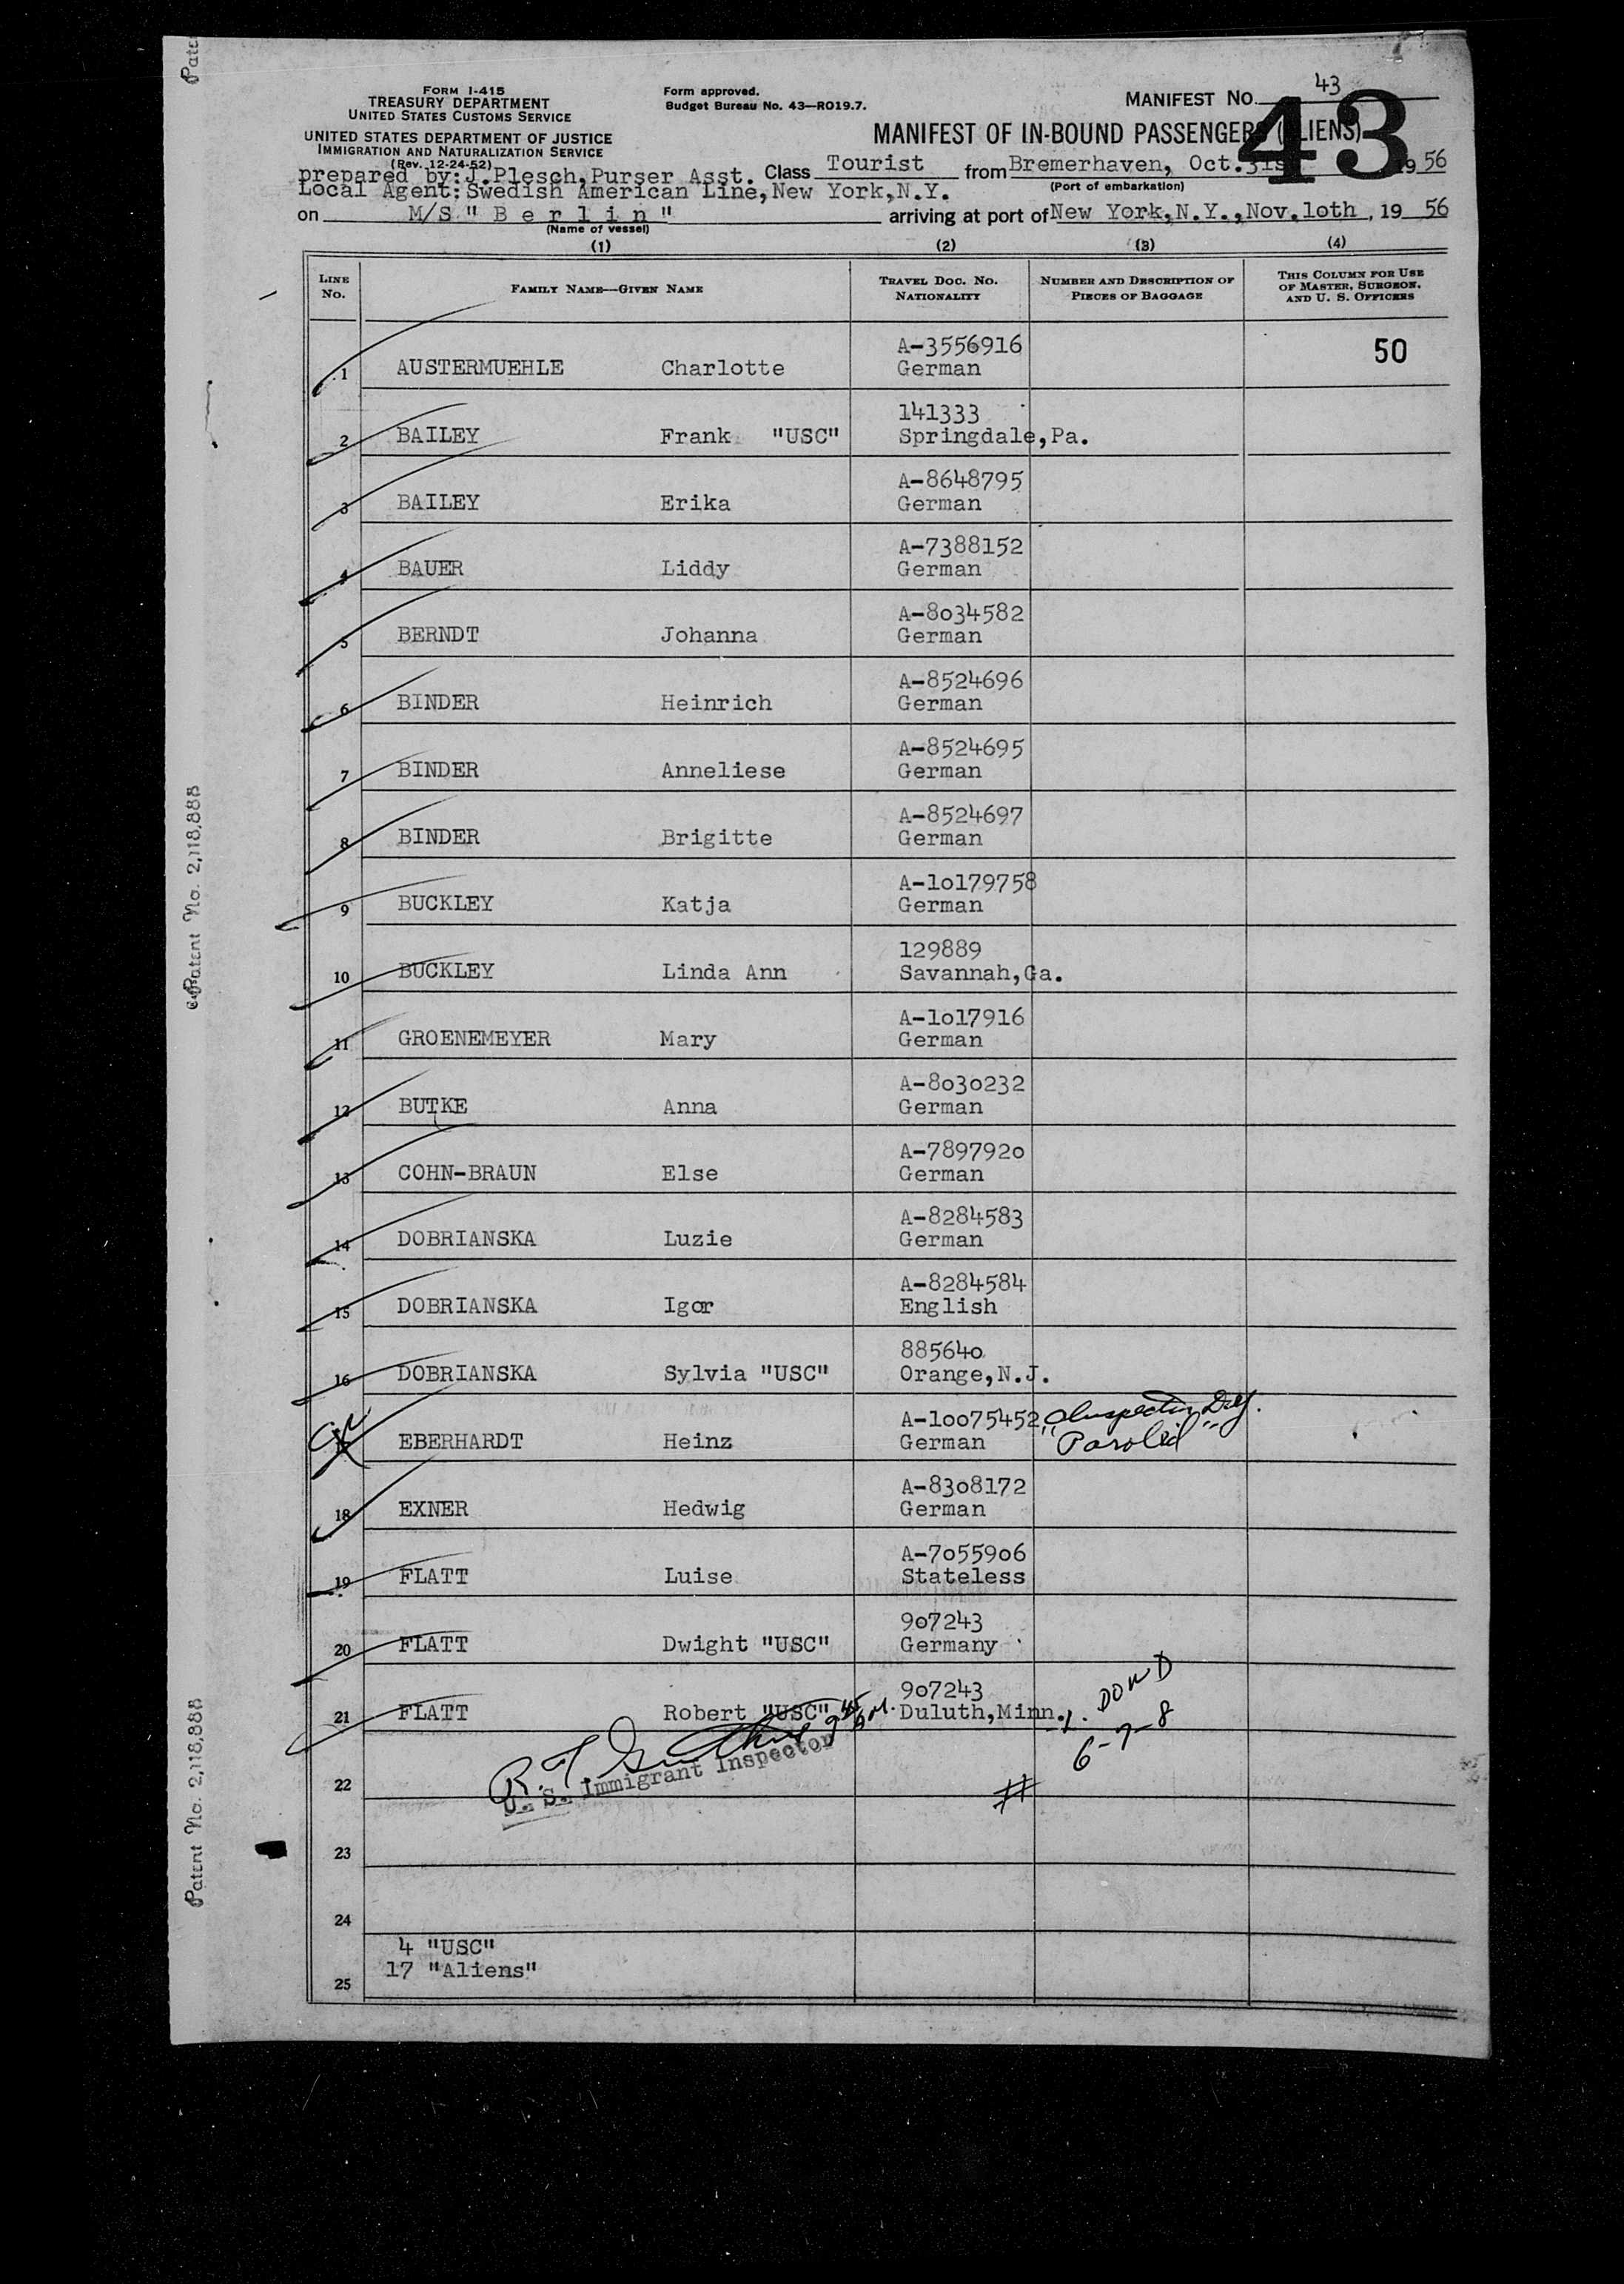 Form I-415
TREASURY DEPARTMENT
UNITED STATES CUSTOMS SERVICE
UNITED STATES DEPARTMENT OF JUSTICE
IMMIGRATION AND NATURALIZATION SERVICE
(Rev. 12-24-52)
Form approved.
Budget Bureau No. 43—RO19.7.
MANIFEST NO. 43
43
MANIFEST OF IN-BOUND PASSENGERS (ALIENS)
prepared by: J. Plesch, Purser Asst. Class Tourist from Bremerhaven, Oct. 31st 1956
(Port of embarkation)
Local Agent: Swedish American Line, New York, N.Y.
on M/S " B e r l i n " arriving at port of New York, N.Y., Nov. 1oth, 19 56
(Name of vessel)
(1) (2) (3) (4)
LINE NO. FAMILY NAME—GIVEN NAME TRAVEL DOC. NO. NATIONALITY NUMBER AND DESCRIPTION OF PIECES OF BAGGAGE THIS COLUMN FOR USE OF MASTER, SURGEON, AND U. S. OFFICERS
A-3556916 50
1 AUSTERMUEHLE Charlotte German
141333
2 BAILEY Frank "USC" Springdale, Pa.
A-8648795
3 BAILEY Erika German
A-7388152
4 BAUER Liddy German
A-8o34582
5 BERNDT Johanna German
A-8524696
6 BINDER Heinrich German
A-8524695
7 BINDER Anneliese German
A-8524697
8 BINDER Brigitte German
A-1o179758
9 BUCKLEY Katja German
129889
10 BUCKLEY Linda Ann Savannah, Ga.
A-1o17916
11 GROENEMEYER Mary German
A-8o3o232
12 BUTKE Anna German
A-789792o
13 COHN-BRAUN Else German
A-8284583
14 DOBRIANSKA Luzie German
A-8284584
15 DOBRIANSKA Igor English
88564o
16 DOBRIANSKA Sylvia "USC" Orange, N.J.
A-1oo75452
EBERHARDT Heinz German Paroled
A-83o8172
18 EXNER Hedwig German
A-7o559o6
19 FLATT Luise Stateless
9o7243
20 FLATT Dwight "USC" Germany
9o7243
21 FLATT Robert "USC" Duluth, Minn.
DOWD
6-7-8
U. S. Immigrant Inspector
22 #
23
24
4 "USC"
17 "Aliens"
25
Patent No. 2,118,888
Patent No. 2,118,888